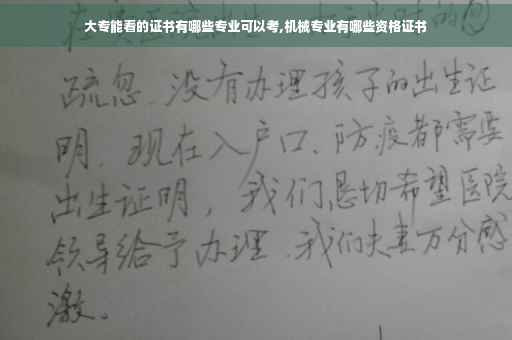 大专能看的证书有哪些专业可以考,机械专业有哪些资格证书
疏忽.没有办理孩子的出生证
明.现在入户口、防疫都需要
出生证明，我们恳切希望医院
领导给予办理.我们夫妻万分感
激。